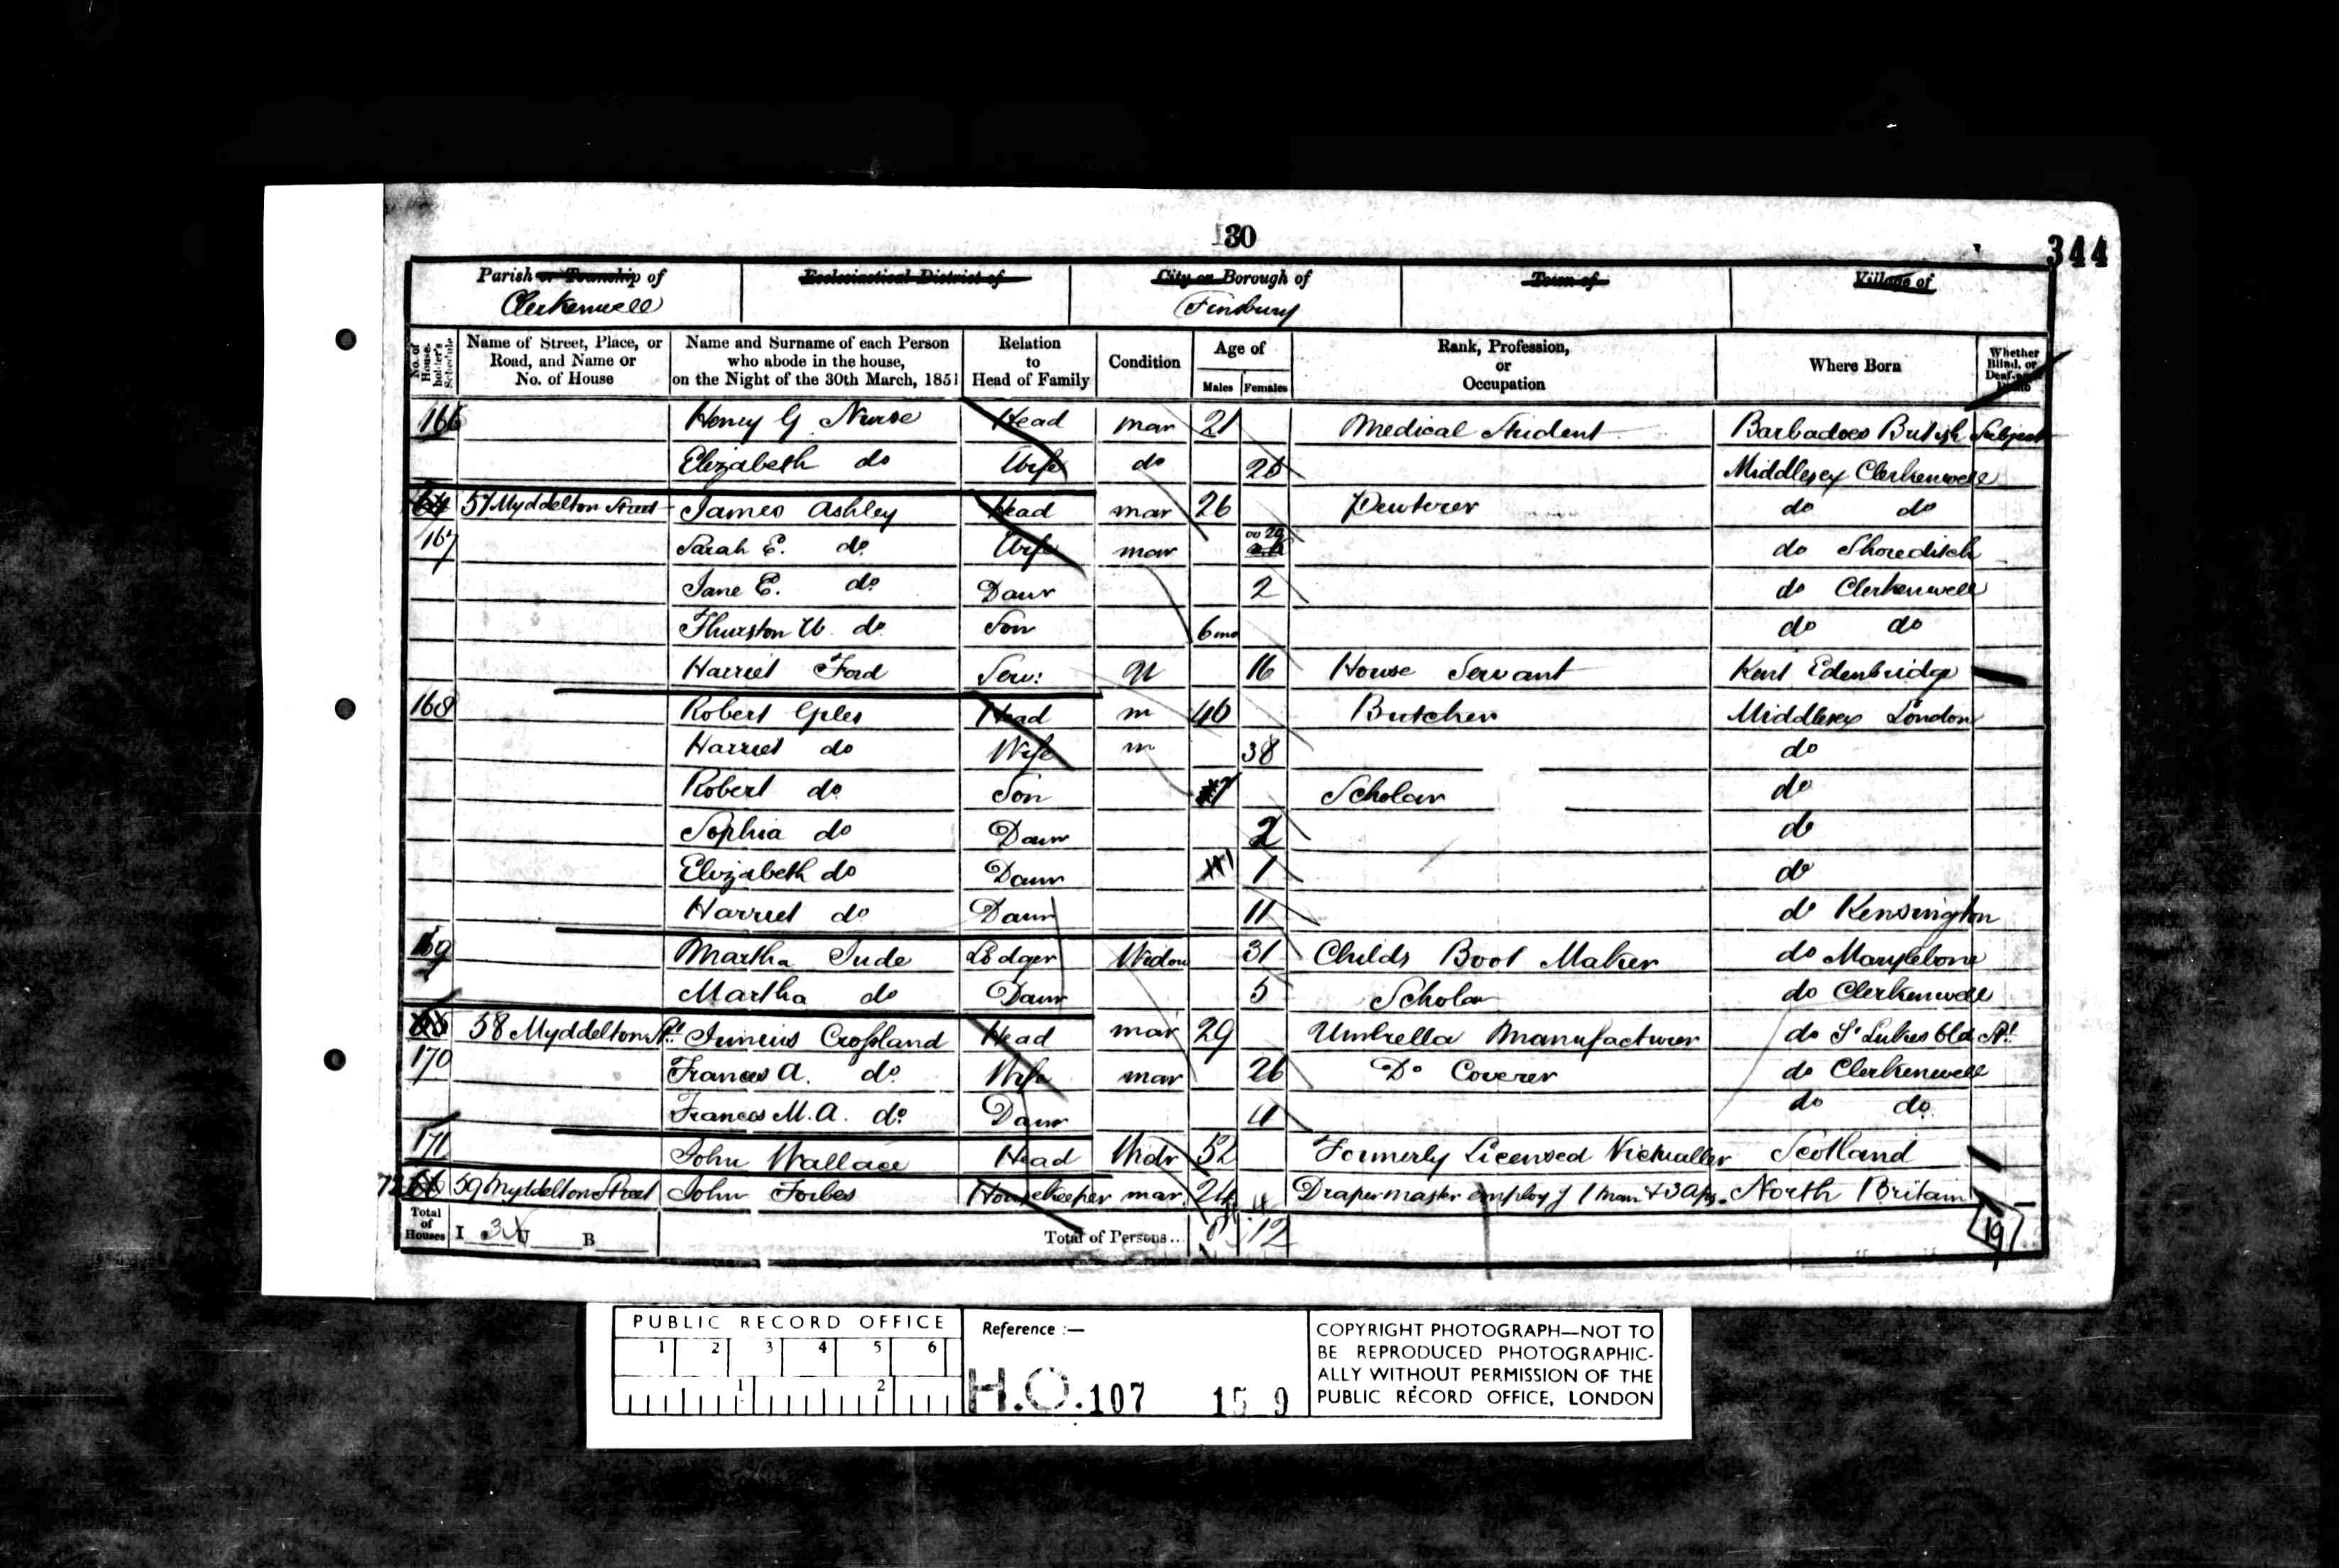 30
344
Parish or Township of
Clerkenwell
Ecclesiastical District of
City or Borough of
Finsbury
Town of
Village of
No. of House-holder's Schedule
Name of Street, Place, or Road, and Name or No. of House
Name and Surname of each Person who abode in the house, on the Night of the 30th March, 1851
Relation to Head of Family
Condition
Age of
Males Females
Rank, Profession, or Occupation
Where Born
Whether Blind, or Deaf-and-Dumb
166 Henry G Nurse Head mar 21 Medical Student Barbadoes British Subject
Elizabeth do Wife do Middlesex Clerkenwell
57 Myddelton Street James Ashley Head mar 26 Pewterer do do
167 Sarah E. do. Wife mar 29 do Shoreditch
Jane E. do. Daur 2 do Clerkenwell
Thurston W. do Son 6 mo do do
Harriet Ford Serv: U 16 House Servant Kent Edenbridge
168 Robert Giles Head m 40 Butcher Middlesex London
Harriet do Wife m 38 do
Robert do Son 7 Scholar do
Sophia do Daur 2 do
Elizabeth do Daur 1 do
Harriet do Daur 11 do Kensington
169 Martha Jude Lodger Widow 31 Childs Boot Maker do Marylebone
Martha do Daur 5 Scholar do Clerkenwell
58 Myddelton St. Junius Crossland Head mar 29 Umbrella Manufacturer do St Lukes Old St.
170 Frances A. do. Wife mar 26 Do Coverer do Clerkenwell
Frances M.A. do. Daur 4 do do.
171 John Wallace Head Widr 52 Formerly Licensed Victualler Scotland
59 Myddelton Street John Forbes Housekeeper mar. 24 Draper master employg 1 man & 3 Aps. North Britain
Total of Houses I 3 U B Total of Persons... 12
19
PUBLIC RECORD OFFICE
1 2 3 4 5 6
1 2
Reference :—
H.O. 107 15 9
COPYRIGHT PHOTOGRAPH—NOT TO
BE REPRODUCED PHOTOGRAPHIC-
ALLY WITHOUT PERMISSION OF THE
PUBLIC RECORD OFFICE, LONDON